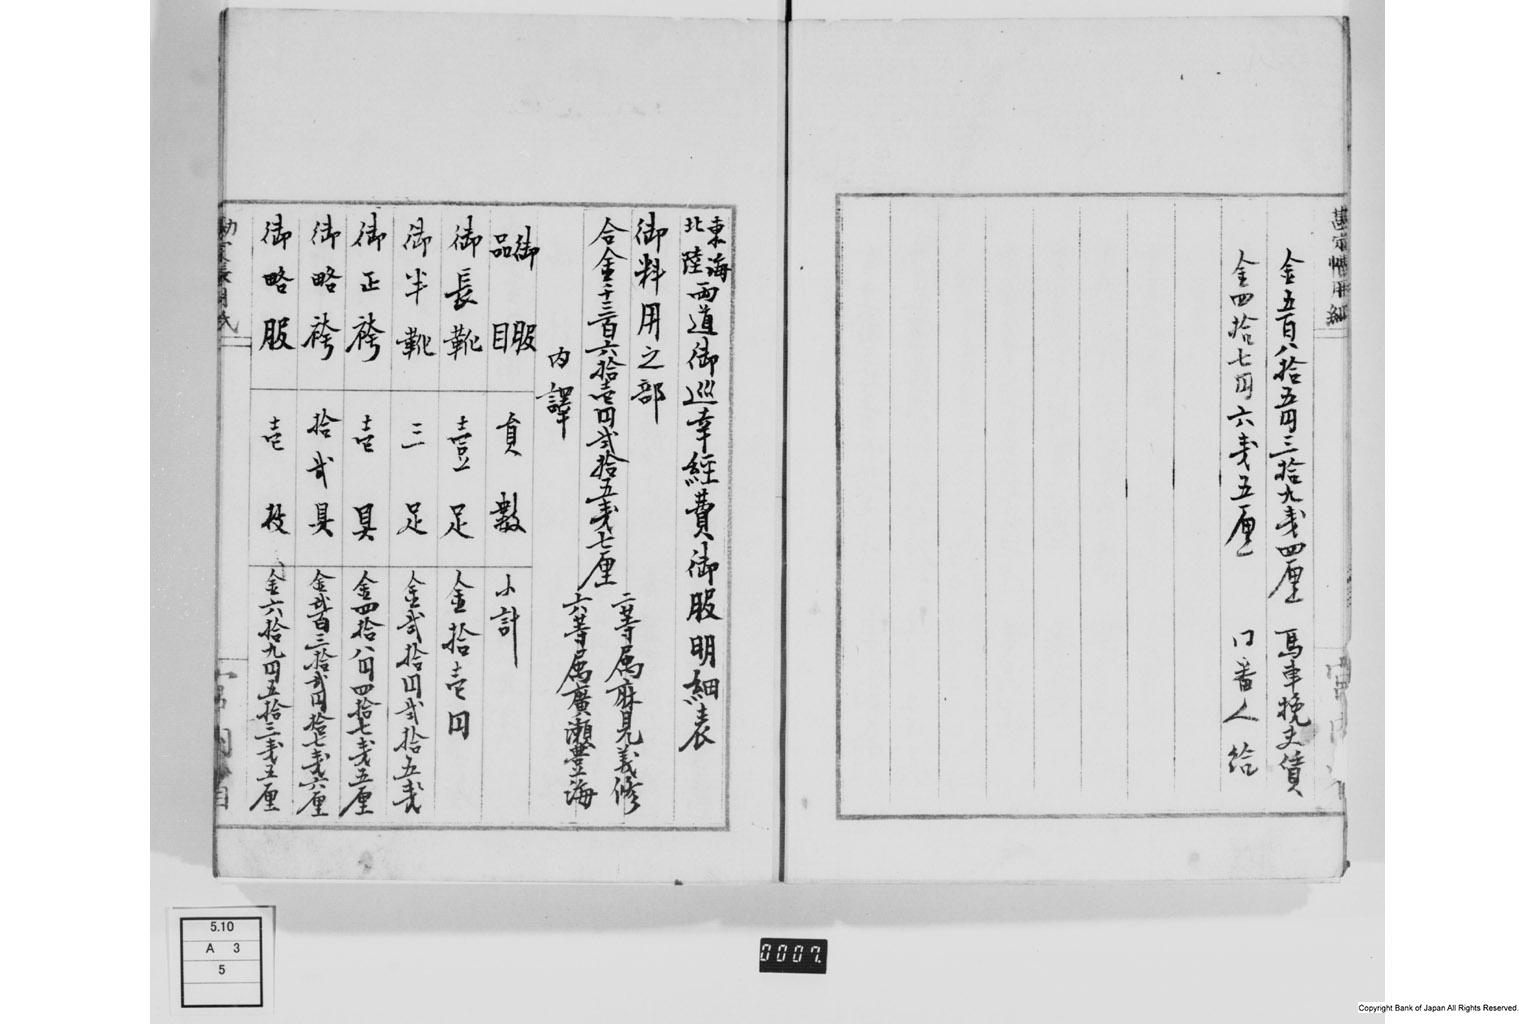 金五百八拾五円三拾九戔四厘　馬車挽夫賃
金四拾七円六戔五厘　門番人給
東海
北陸
両道御巡幸經費御服明細表
御料用之部
合金千三百六拾壱円弐拾五戔七厘
二等属麻見義修
六等属廣瀬豊海
内譯
御服品目　員數　小計
御長靴　壹足　金拾壱円
御半靴　三足　金弐拾円弐拾五戔
御正袴　壱具　金四拾八円四拾七戔五厘
御略袴　拾弐具　金弐百三拾弐円拾七戔六厘
御略服　壱枚　金六拾九円五拾三戔五厘
5.10
A 3
5
0007.
Copyright Bank of Japan All Rights Reserved.